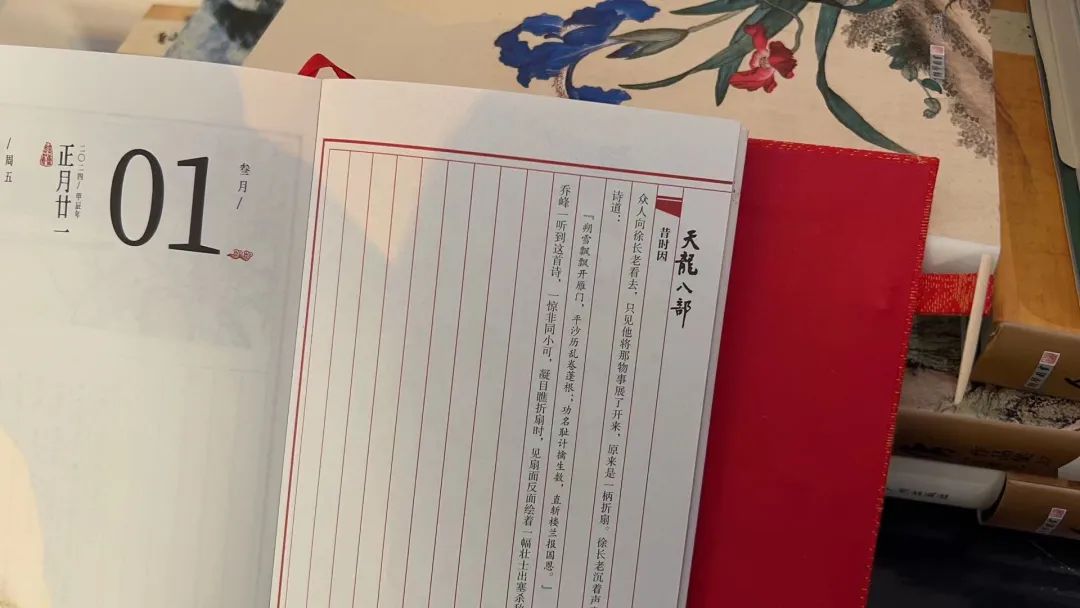 叁月/
01
二〇二四/甲辰年
正月廿一
/周五
天龍八部
昔时因
众人向徐长老看去，只见他将那物事展了开来，原来是一柄折扇。徐长老沉着声
诗道：
『朔雪飘飘开雁门，平沙历乱卷蓬根；功名耻计擒生数，直斩楼兰报国恩。』
乔峰一听到这首诗，一惊非同小可，凝目瞧折扇时，见扇面反面绘着一幅壮士出塞杀